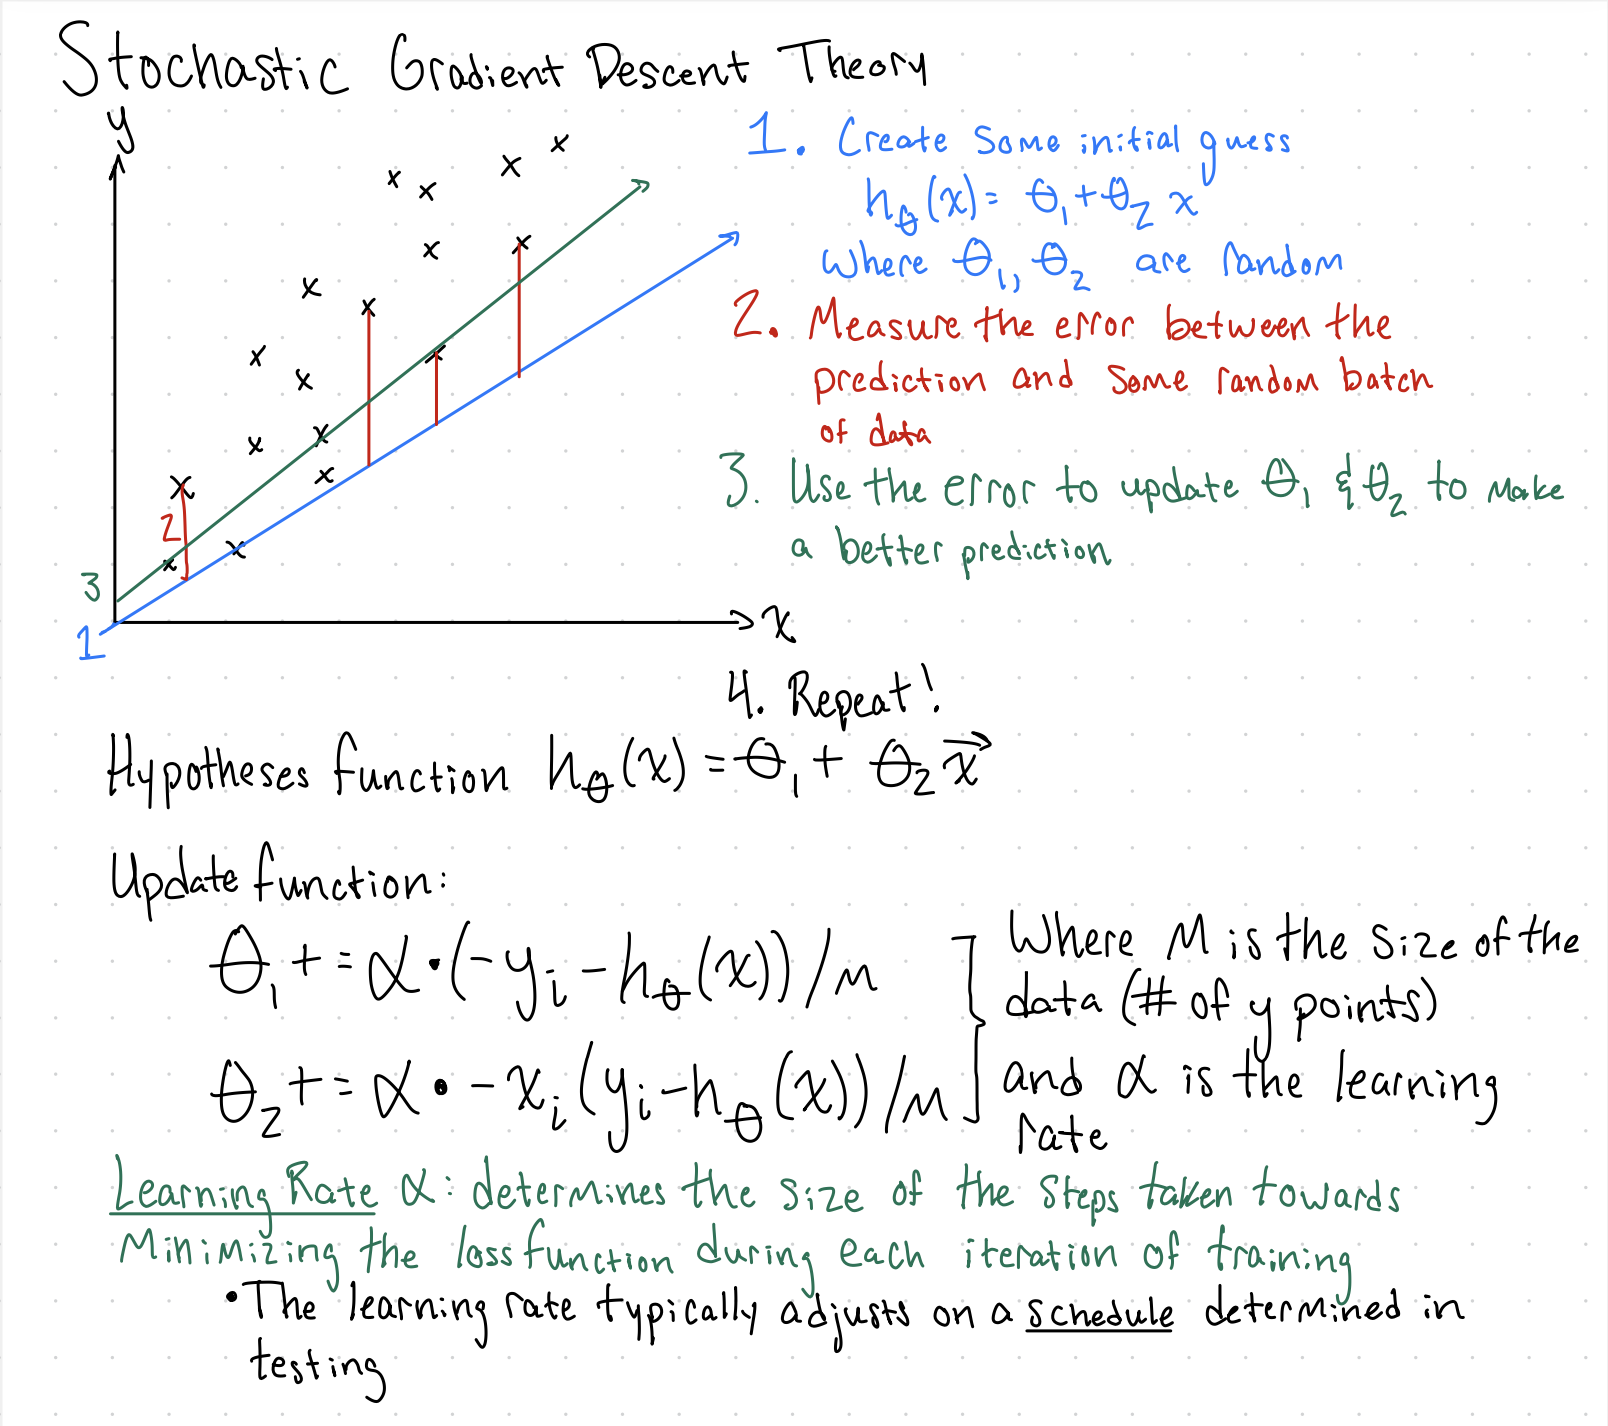 Stochastic Gradient Descent Theory
y
1. Create some initial guess
hθ(x) = θ₁ + θ₂ x
where θ₁, θ₂ are random
2. Measure the error between the
prediction and some random batch
of data
3. Use the error to update θ₁ & θ₂ to make
a better prediction
2
3
1
x
4. Repeat!
Hypotheses function hθ(x) = θ₁ + θ₂ x⃗
Update function:
θ₁ += α·(-yᵢ - hθ(x))/m
θ₂ += α · -xᵢ(yᵢ - hθ(x))/m
Where m is the size of the
data (# of y points)
and α is the learning
rate
Learning Rate α: determines the size of the steps taken towards
minimizing the loss function during each iteration of training
• The learning rate typically adjusts on a schedule determined in
testing